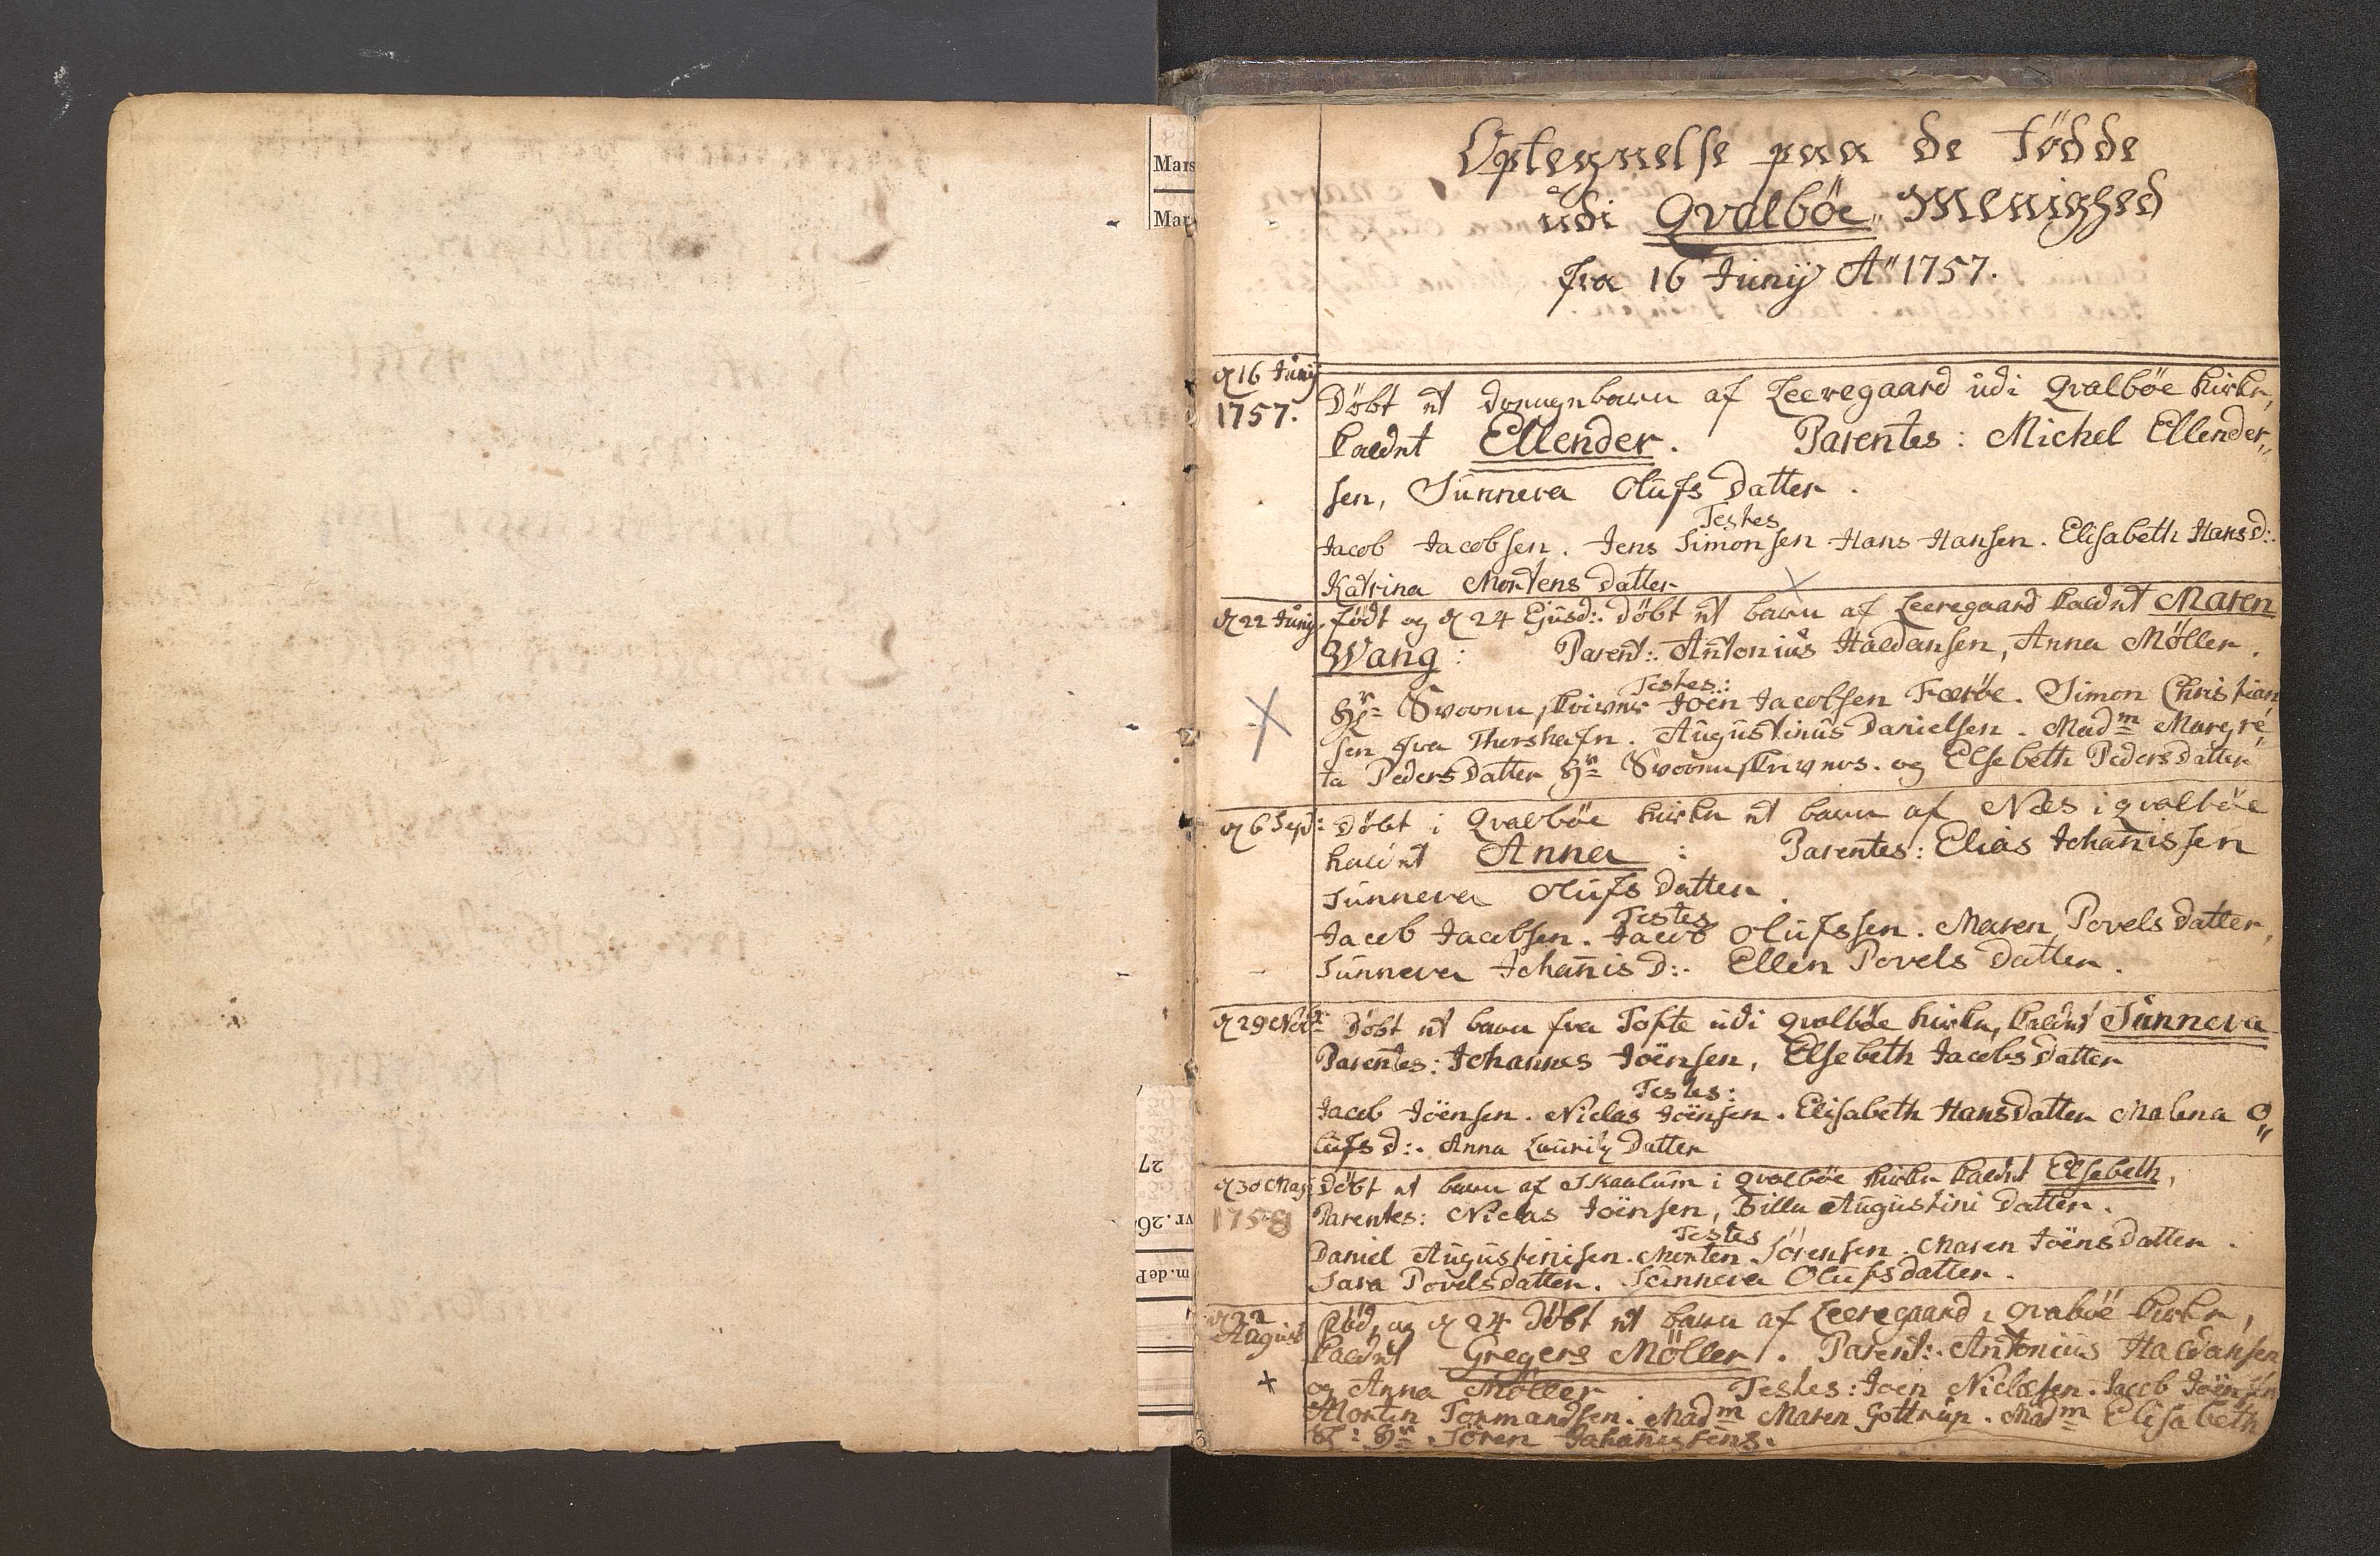 Mars
Mar
27
vr. 26
m. de P
Optegnelse paa de Fødde
udi Qvalbøe Menighed
fra 16 Junij Aº 1757.
d 16 Junij
1757.
Døbt et drengebarn af Leeregaard udi Qvalbøe kirke,
kaldet Ellender. Parentes: Michel Ellender„
sen, Sunneva Olufs Datter.
Testes
Jacob Jacobsen. Jens Simonsen Hans Hansen. Elisabeth Hansd:.
Katrina Mortens Datter
d 22 Junij. født og d 24 Ejusd:. døbt et barn af Leeregaard kaldet Maren
Wang: Parent:. Antonius Haldansen, Anna Møller.
Testes:
Hr Sorenskriver Joen Jacobsen Færøe. Simon Christian
sen fra Thorshafn. Augustinus Danielsen. Madm Margre„
ta Peders Datter Hr Sorenskrivers. og Elsebeth Pedersdatter
d 6 Sept: Døbt i Qvalbøe kirke et barn af Næs i qvalbøe
kaldet Anna: Parentes: Elias Johanissen
Sunneva Olufs Datter.
Testes
Jacob Jacobsen. Jacob Olufssen. Maren Povels Datter,
Sunneva Johanis D:. Ellen Povels Datter.
d 29 Nov: Døbt et barn fra Tofte udi qvalbøe kirke, kaldet Sunneva
Parentes: Johannes Joënsen, Elsebeth Jacobs Datter
Testes:
Jacob Joënsen. Niclas Joënsen. Elisabeth Hansdatter Malena O„
lufs d:. Anna Lauritz Datter
d 30 Maj: Døbt et barn af Skaalum i qvalbøe kirke kaldet Elsebeth,
1758 Parentes: Niclas Joënsen, Billa Augustini Datter.
Testes
Daniel Augustinisen. Morten Sørensen. Maren Joënsdatter.
Sara Povelsdatter. Sunneva Olufsdatter.
d 22
August
fød, og d 24 døbt et barn af Leeregaard i qvalbøe kirke,
kaldet Gregers Møller. Parent:. Antonius Haldansen
og Anna Møller. Testes: Joen Niclæsen. Jacob Joënsen
Morten Tormandsen. Madm Maren Gottrup. Madm Elisabeth
Hr Søren Johannissens.
3